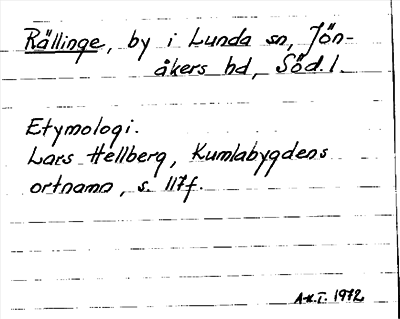 Rällinge, by i Lunda sn, Jön-
åkers hd, Söd.l.
Etymologi.
Lars Hellberg, Kumlabygdens
ortnamn, s. 117f.
A-k.T. 1972